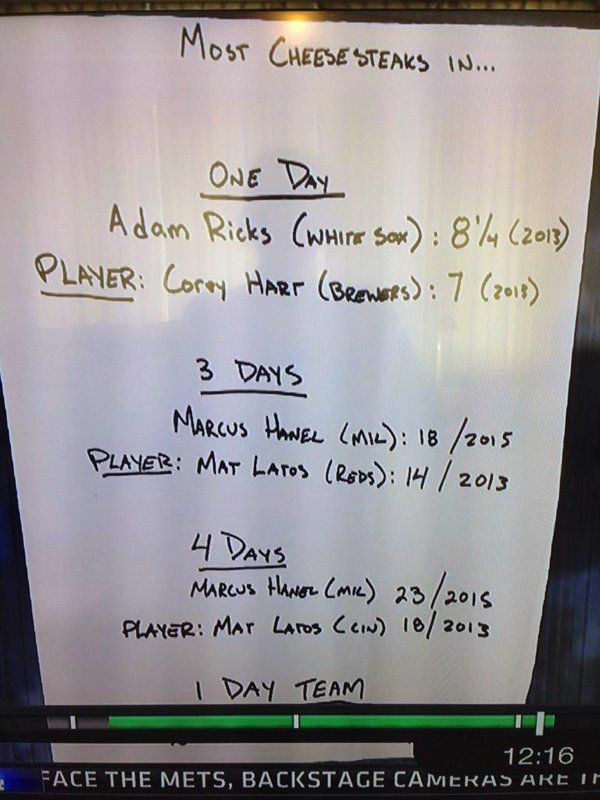 MOST CHEESESTEAKS IN...
ONE DAY
Adam Ricks (WHITE SOX): 8 1/4 (2013)
PLAYER: Corey HART (BREWERS): 7 (2013)
3 DAYS
MARCUS HANEL (MIL): 18 / 2015
PLAYER: MAT LATOS (REDS): 14 / 2013
4 DAYS
MARCUS HANEL (MIL) 23 / 2015
PLAYER: MAT LATOS (CIN) 18 / 2013
1 DAY TEAM
12:16
FACE THE METS, BACKSTAGE CAMERAS ARE